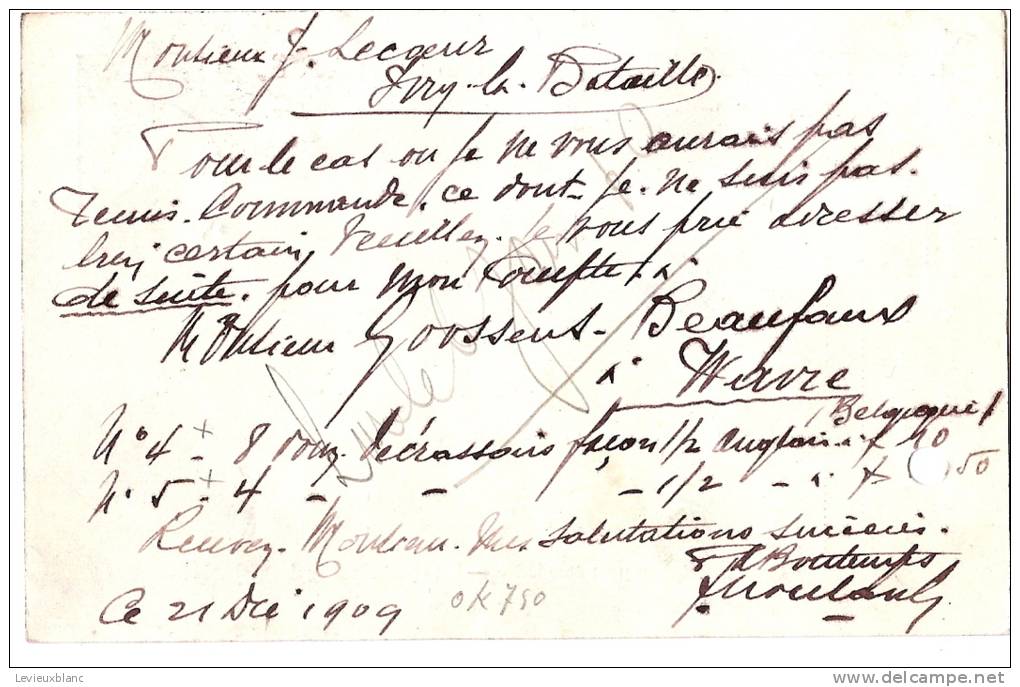 Monsieur J. Lecoeur
Ivry-la-Bataille.
Pour le cas ou je ne vous aurais pas
remis. Commande. ce dont je. ne suis pas.
bien certain, veuillez. je vous prie adresser
de suite. pour mon Compte. à
Monsieur Goossens-Beaufaux
à Wavre
(Belgique)
N° 4 - 8 douz. Décrassoirs façon 1/2 anglais à f 10
N° 5 - 4 - - - 1/2 - à f 50
Recevez. Monsieur. mes salutations sincères.
Ce 21 Déc 1909
OK 790
Levieuxblanc
www.delcampe.net